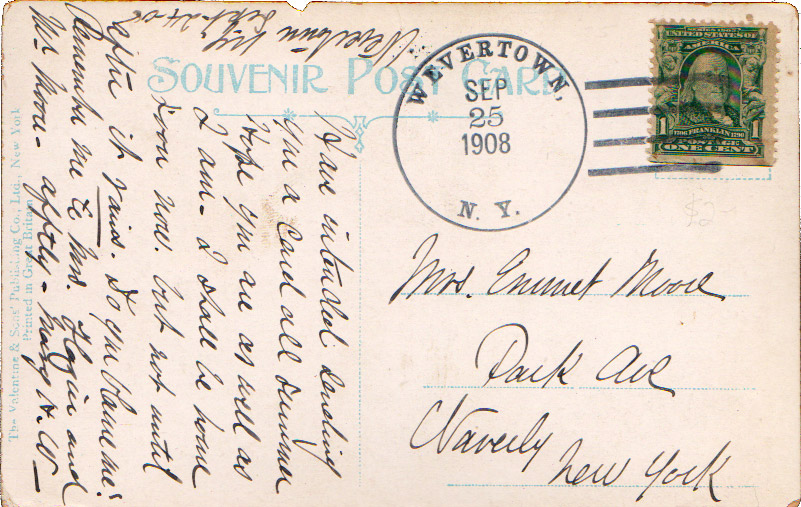 Wevertown N.Y.
Sept-24-08
SOUVENIR POST CARD
I've intended sending
you a card all summer
Hope you are as well as
I am - I shall be home
soon now. but not until
after it rains. Do you blame me?
Remember me to Mrs. and
Mr. Moore - affctly - Mary H. W -
The Valentine & Sons' Publishing Co., Ltd., New York
Printed in Great Britain
WEVERTOWN,
SEP
25
1908
N. Y.
SERIES 1902
UNITED STATES OF
AMERICA
1706 FRANKLIN 1790
POSTAGE
1 ONE CENT 1
$2
Mrs. Emmet Moore
Park Ave
Waverly
New York